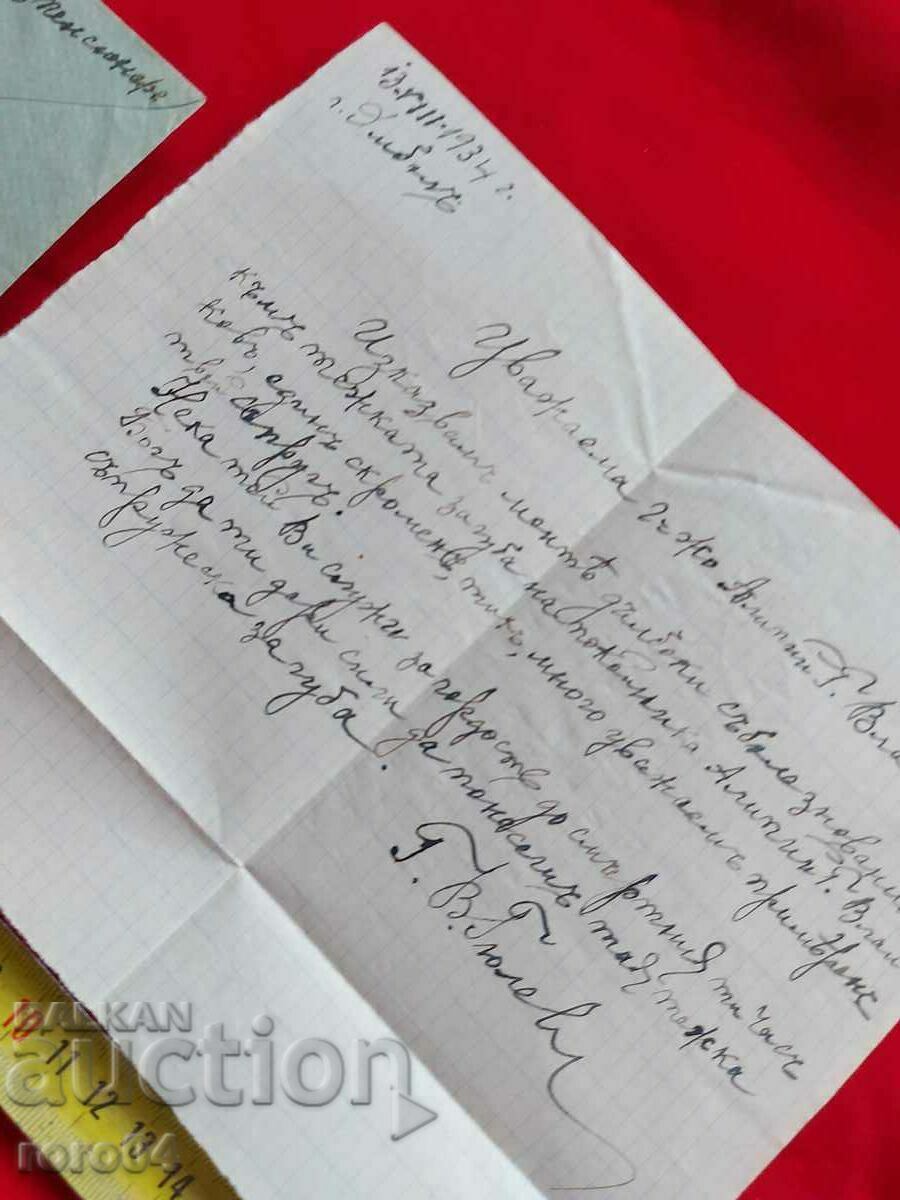 пенсионера
13.VIII.1934 г.
г.
Уважаема г-жо Алипи Г. Вла
Изказвамъ моитѣ дълбоки съболезнования
къмъ тежката загуба на покойника Алипи Г. Вла
ковъ, единъ скроменъ, тихъ, много уважаемъ примѣренъ
твой съпругъ.
Нека той Ви служи за гордость до смъртния ти часъ
Богъ да ти дари сили да понесешъ тая тежка
съпружеска загуба.
Г. В. Гюлев
BALKAN
auction
roro64
10 11 12 13 14